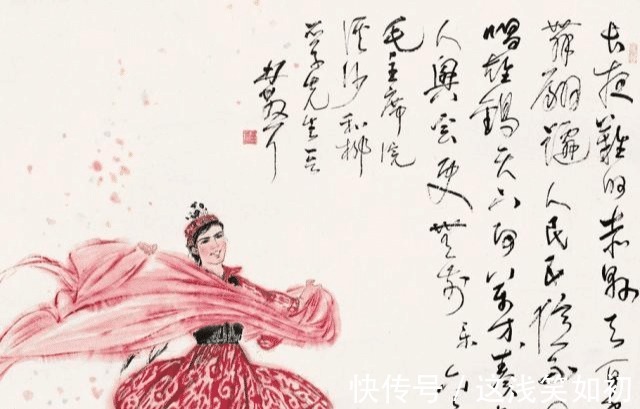 长夜難明赤縣天百
舞翩躚人民五億不
唱雄鷄天下白萬方奏
人興會更無前
毛主席浣
溪沙和柳
亞子先生
快传号 / 这浅笑如初